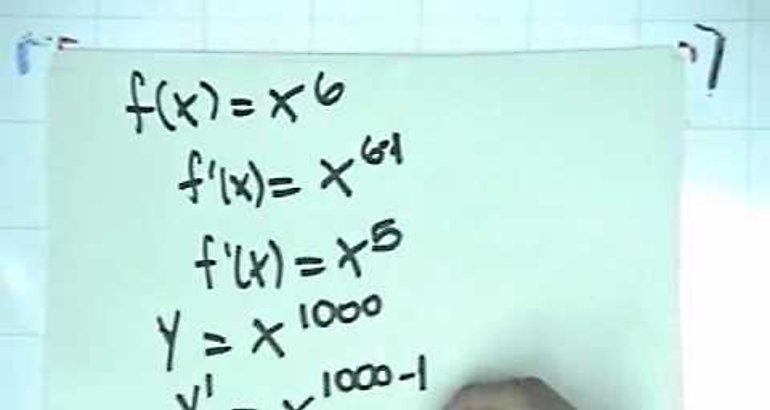 f(x) = x^6
f'(x) = x^{6-1}
f'(x) = x^5
y = x^{1000}
y' = x^{1000-1}